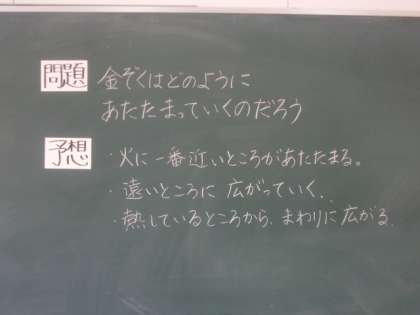 問題 金ぞくはどのように
あたたまっていくのだろう
予想 ・火に一番近いところがあたたまる。
・遠いところに広がっていく。
・熱しているところから、まわりに広がる。